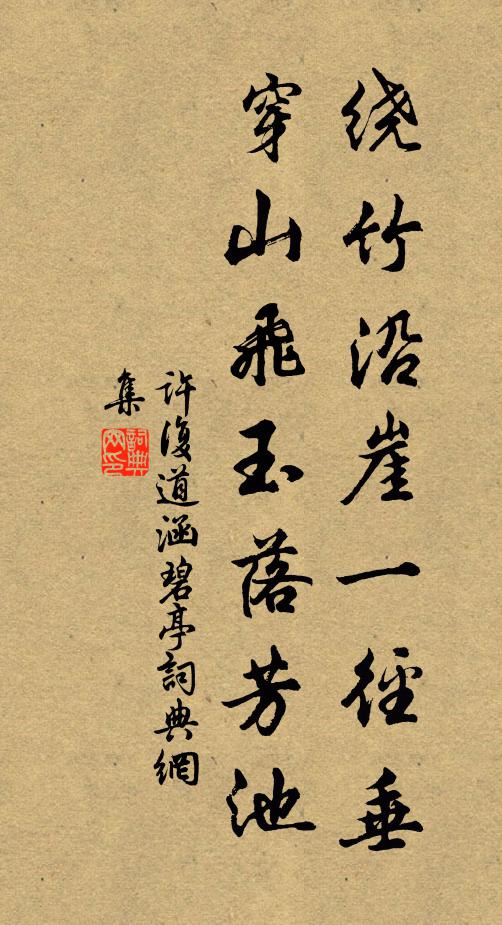 绕竹沿崖一径垂
穿山飛玉落芳池
許復道涵碧亭詞典網
集
詞典网印